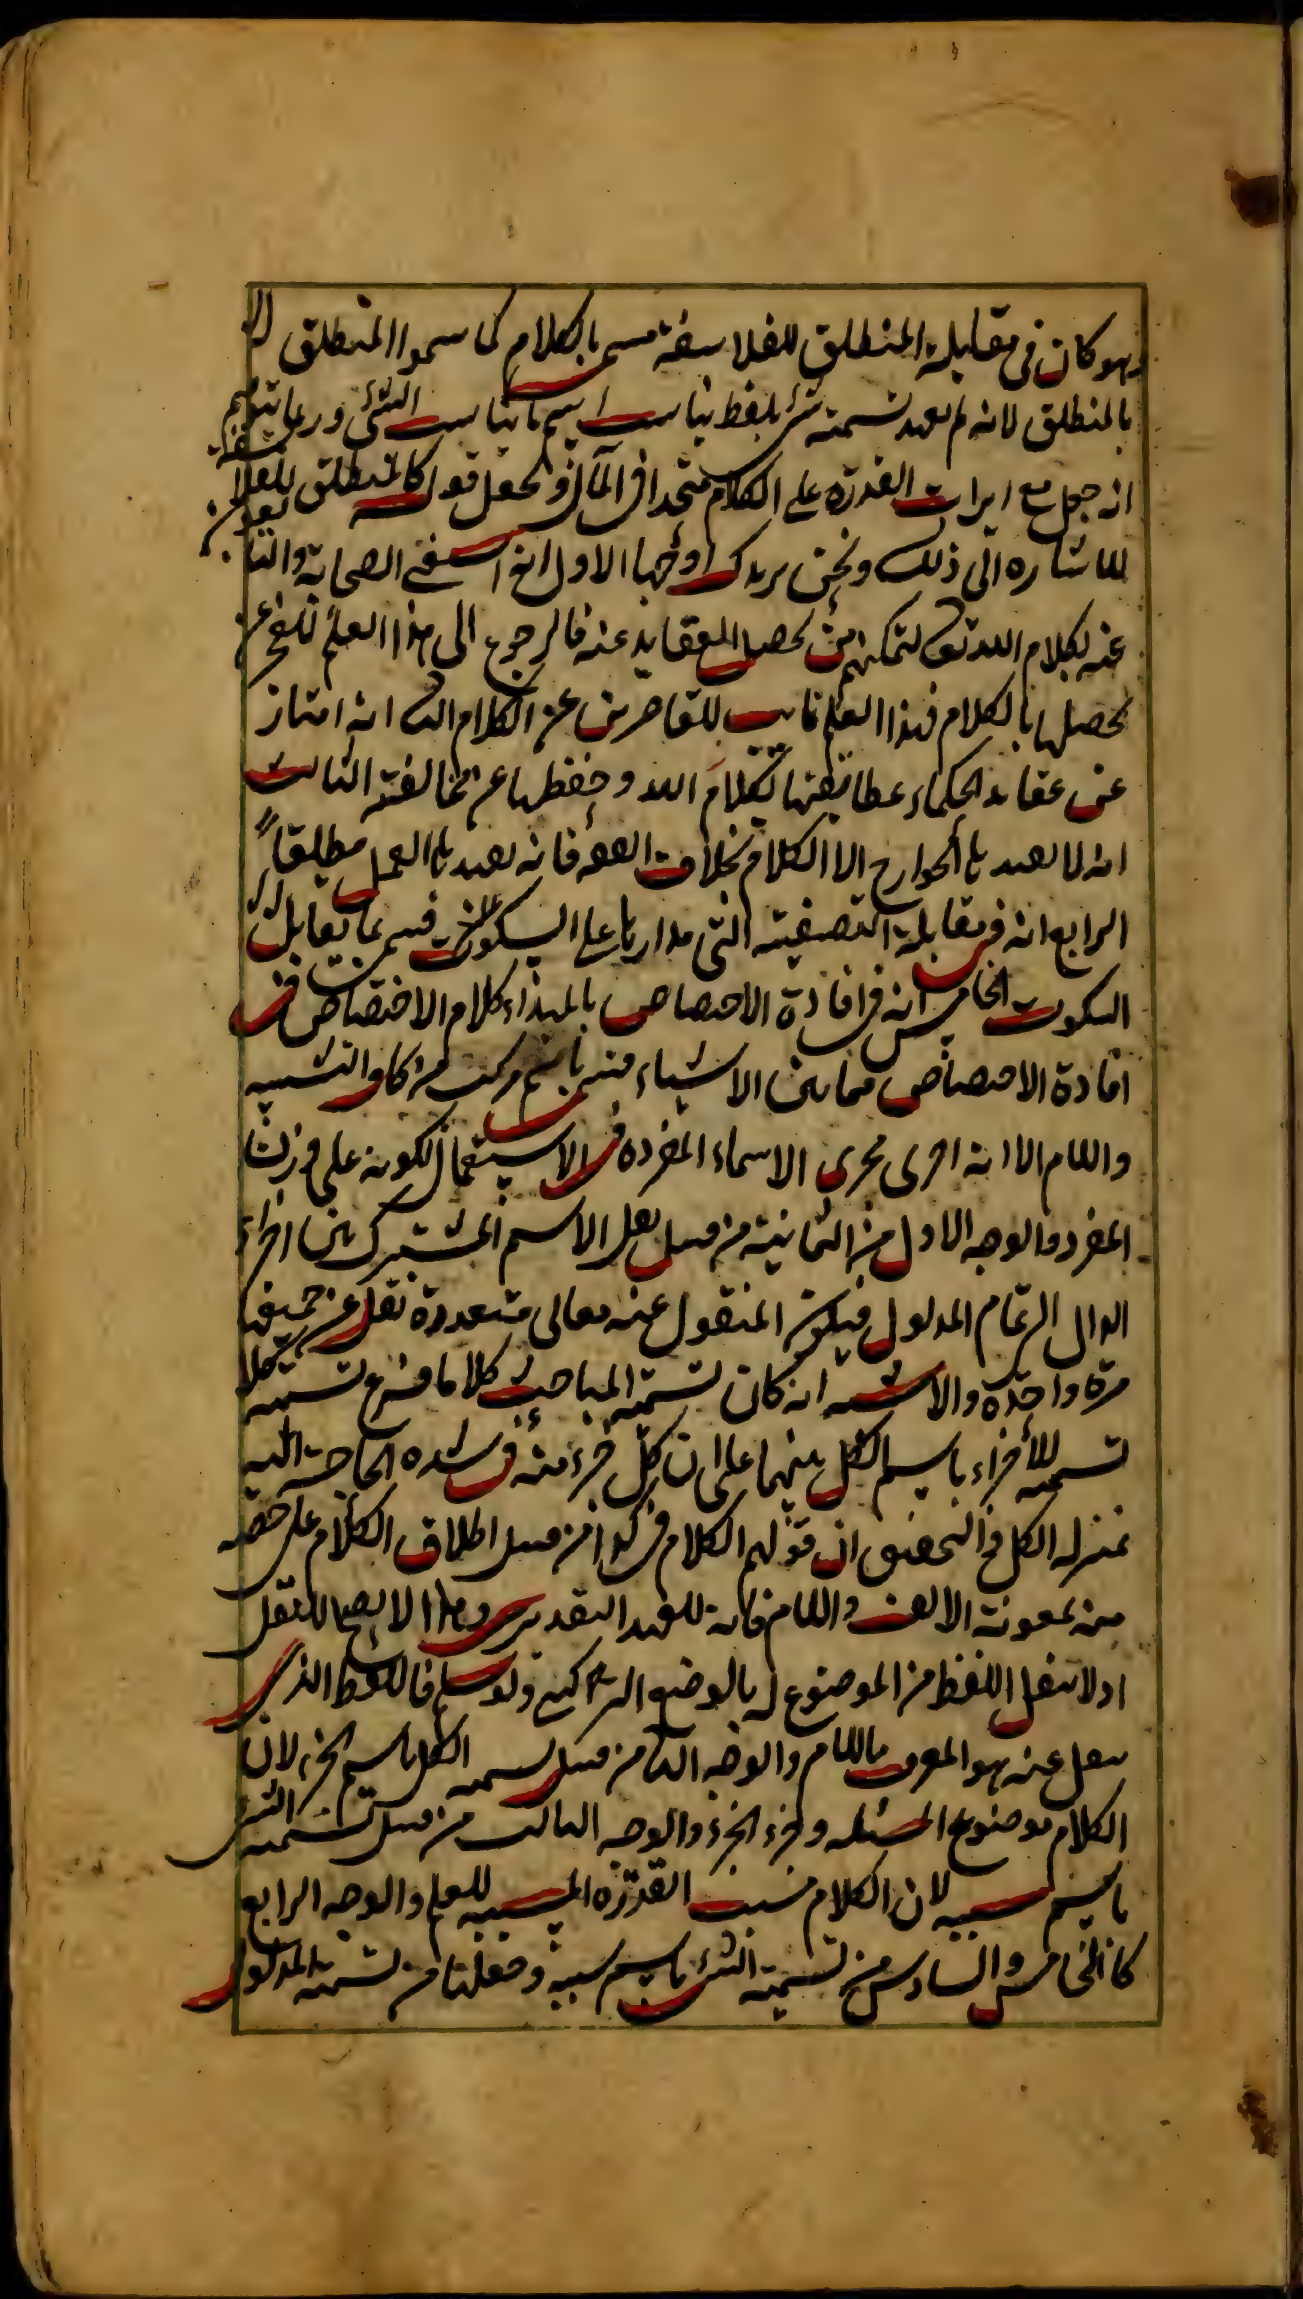 وهو كان في مقابلة المنطق للفلاسفة مسمى بالكلام كما سموا المنطق لا
بالمنطق لانه لم يعهد تسمية شئ بلفظ يناسب اسم ما يناسب الشئ وربما يتوهم
انه جعل مع ايراث القدرة على الكلام متحدا في المآل وجعل قوله كالمنطق للفلاسفة
للاشارة الى ذلك ونحن نريدك اوجها الاول انه استغنى الصحابة والتابعون
عنه لكلام الله تعالى لتمكنهم من تحصيل العقايد عنه فالرجوع الى هذا العلم للعجز عن
تحصيلها بالكلام فهذا العلم نائب للقاصرين عن الكلام الثانى انه امتاز
عن عقائد الحكماء بمطابقتها لكلام الله وحفظها عن مخالفته الثالث
انه لا يعبد بالجوارح الا الكلام بخلاف الفقه فانه يعبد بالعمل مطلقا
الرابع انه في مقابلة التصفية التي مدارها على السكوت فسمي بما يقابل
السكوت الخامس انه في افادة الاختصاص بالمبدأ كلام الاختصاص في
افادة الاختصاص فيما بين الاشياء فسمي باسم مركب من كاف التشبيه
واللام الا انه اجرى مجرى الاسماء المفردة في الاستعمال لكونه على وزن
المفرد والوجه الاول من الثمانية من قبيل نقل الاسم المشترك بين اجزاء
الدال الى تمام المدلول فيكون المنقول عنه معاني متعددة نقل عن جميعها
مرة واحدة والاشبه انه كان تسمية المباحث كلاما فرع تسميه
تسمية للأجزاء باسم الكل تنبيها على ان كل جزء منه في شدة الحاجة اليه
بمنزلة الكل والتحقيق ان قولهم الكلام في كذا من قبيل اطلاق الكلام على حصة
منه بمعونة الالف واللام فانه للعهد التقديري وهذا لا يصح للنقل
اذ لا ينقل اللفظ من الموضوع له بالوضع التركيبي ولو سلم فاللفظ الذي
ينقل عنه هو المعرف باللام والوجه الثاني من قبيل تسمية الكل باسم الجزء لان
الكلام موضوع المسئلة وجزء الجزء والوجه الثالث من قبيل تسمية الشئ
باسم مسببه لان الكلام مسبب القدرة المسببة للعلم والوجه الرابع
كالخامس والسادس من تسمية الشئ باسم سببه وجعلنا من تسمية المدلول